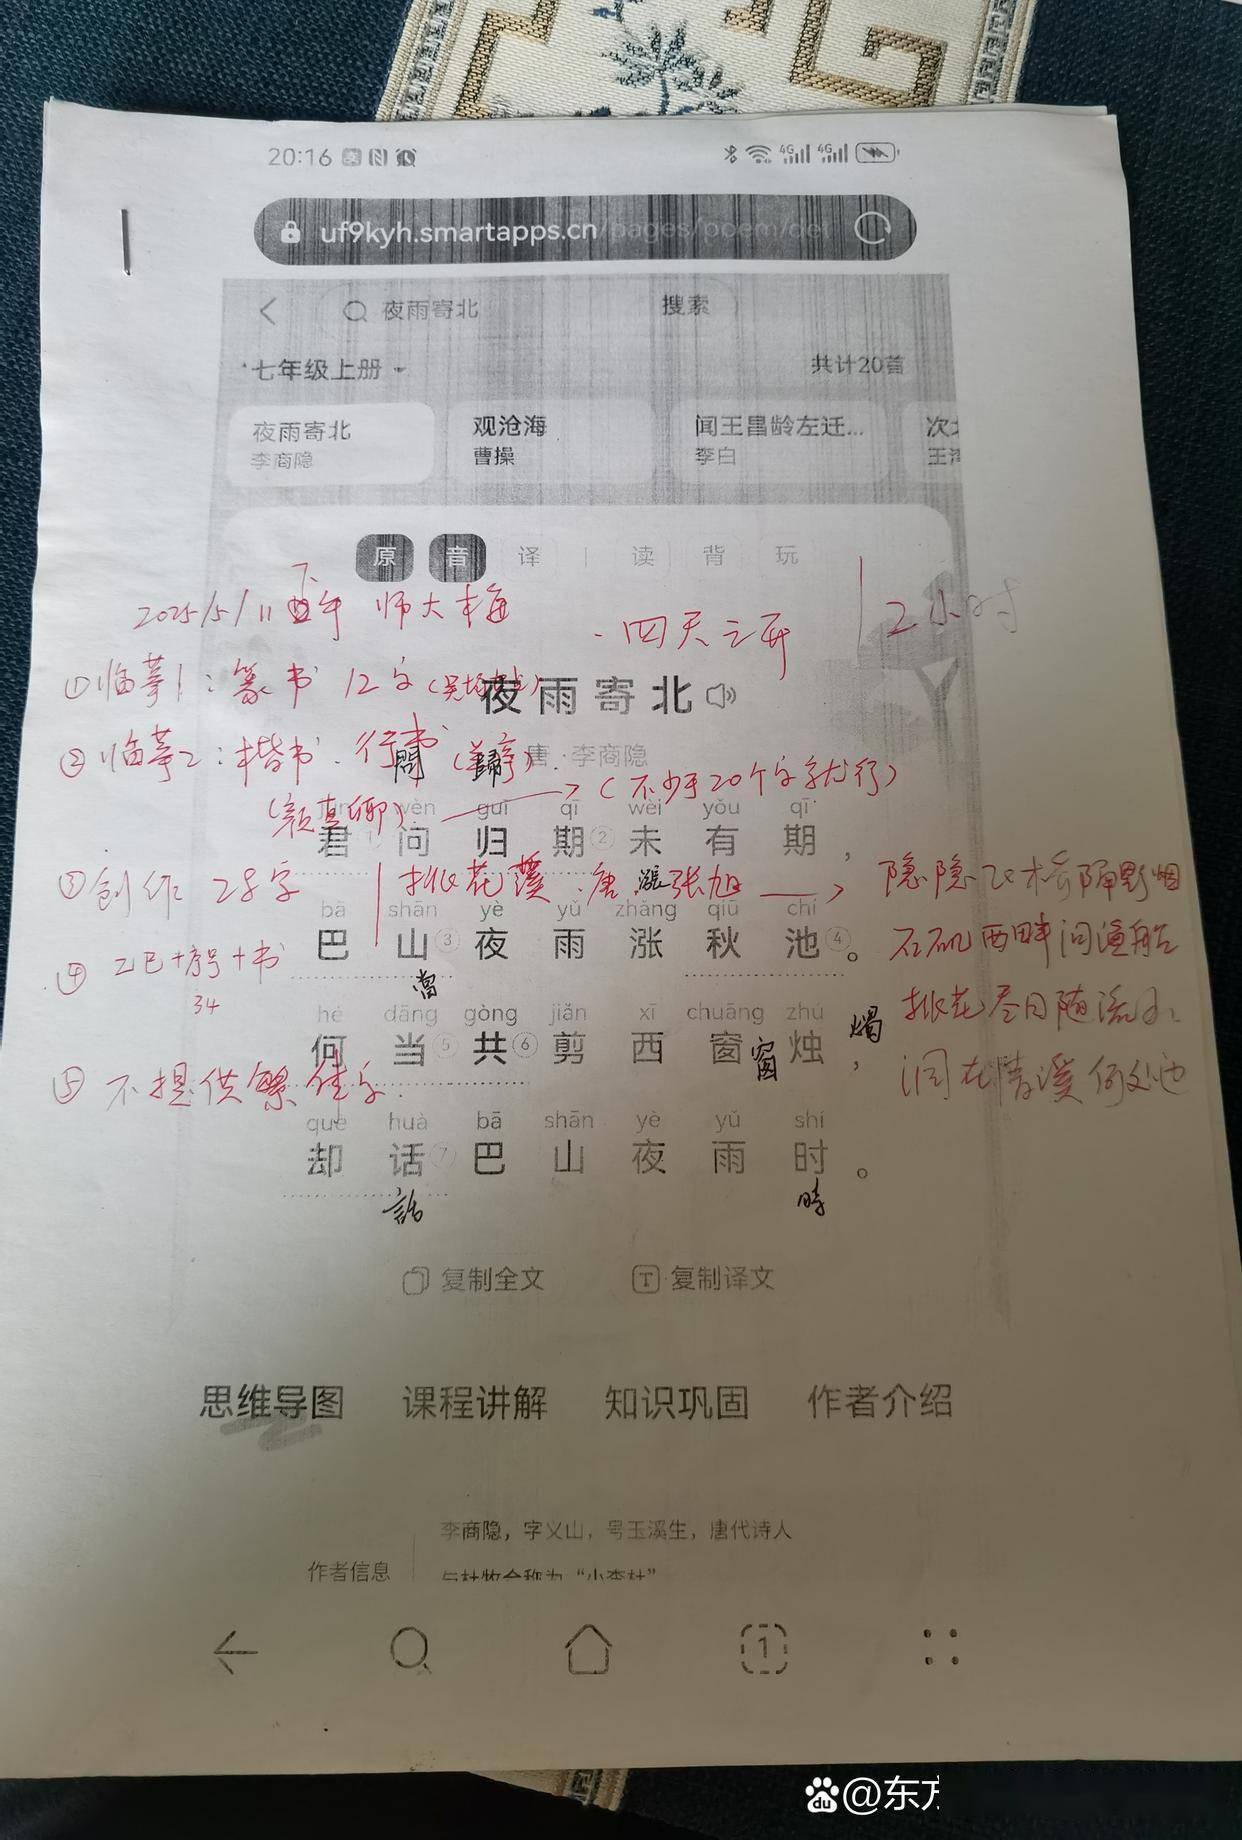 20:16
4G 4G
uf9kyh.smartapps.cn/pages/poem/det
夜雨寄北 搜索
七年级上册 共计20首
夜雨寄北 观沧海 闻王昌龄左迁... 次
李商隐 曹操 李白 王
原 音 译 读 背 玩
2025/5/11 下午 师大本
四天之
2小时
①临摹1:篆书 12字
夜雨寄北
②临摹2:楷书.行书(兰亭)
問 歸
唐·李商隐
(颜真卿) (不少于20个字就行)
jūn wèn guī qī wèi yǒu qī
君① 问 归 期② 未 有 期,
③创作 28字 桃花溪.唐.张旭 隐隐飞桥隔野烟
漲
bā shān yè yǔ zhǎng qiū chí
巴 山③ 夜 雨 涨 秋 池④。
石矶西畔问渔船
④乙巳+序号+书
34
當
hé dāng gòng jiǎn xī chuāng zhú
桃花尽日随流水
何 当⑤ 共⑥ 剪 西 窗 烛,
窗 燭
⑤不提供繁体字.
洞在清溪何处边
què huà bā shān yè yǔ shí
却 话⑦ 巴 山 夜 雨 时。
話 時
复制全文 复制译文
思维导图 课程讲解 知识巩固 作者介绍
李商隐,字义山,号玉溪生,唐代诗人
作者信息
与杜牧合称为“小李杜”
1
du @东方